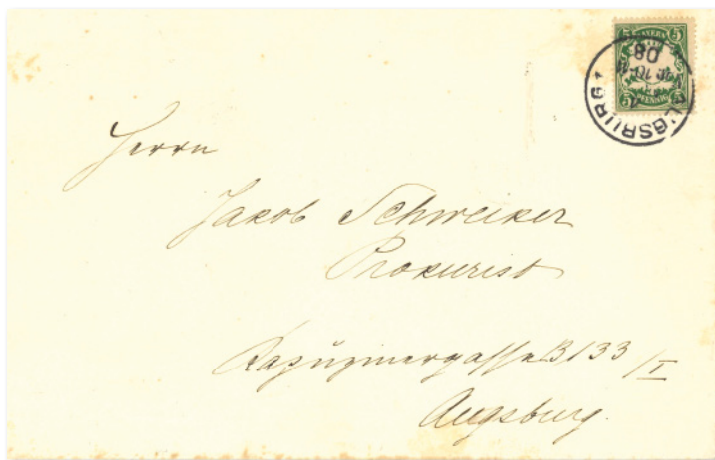 BAYERN
5 5
PFENNIG
5 5
AUGSBURG 1
08
Herrn
Jakob Schweiker
Prokurist
Kapuzinergasse B 133/I
Augsburg.